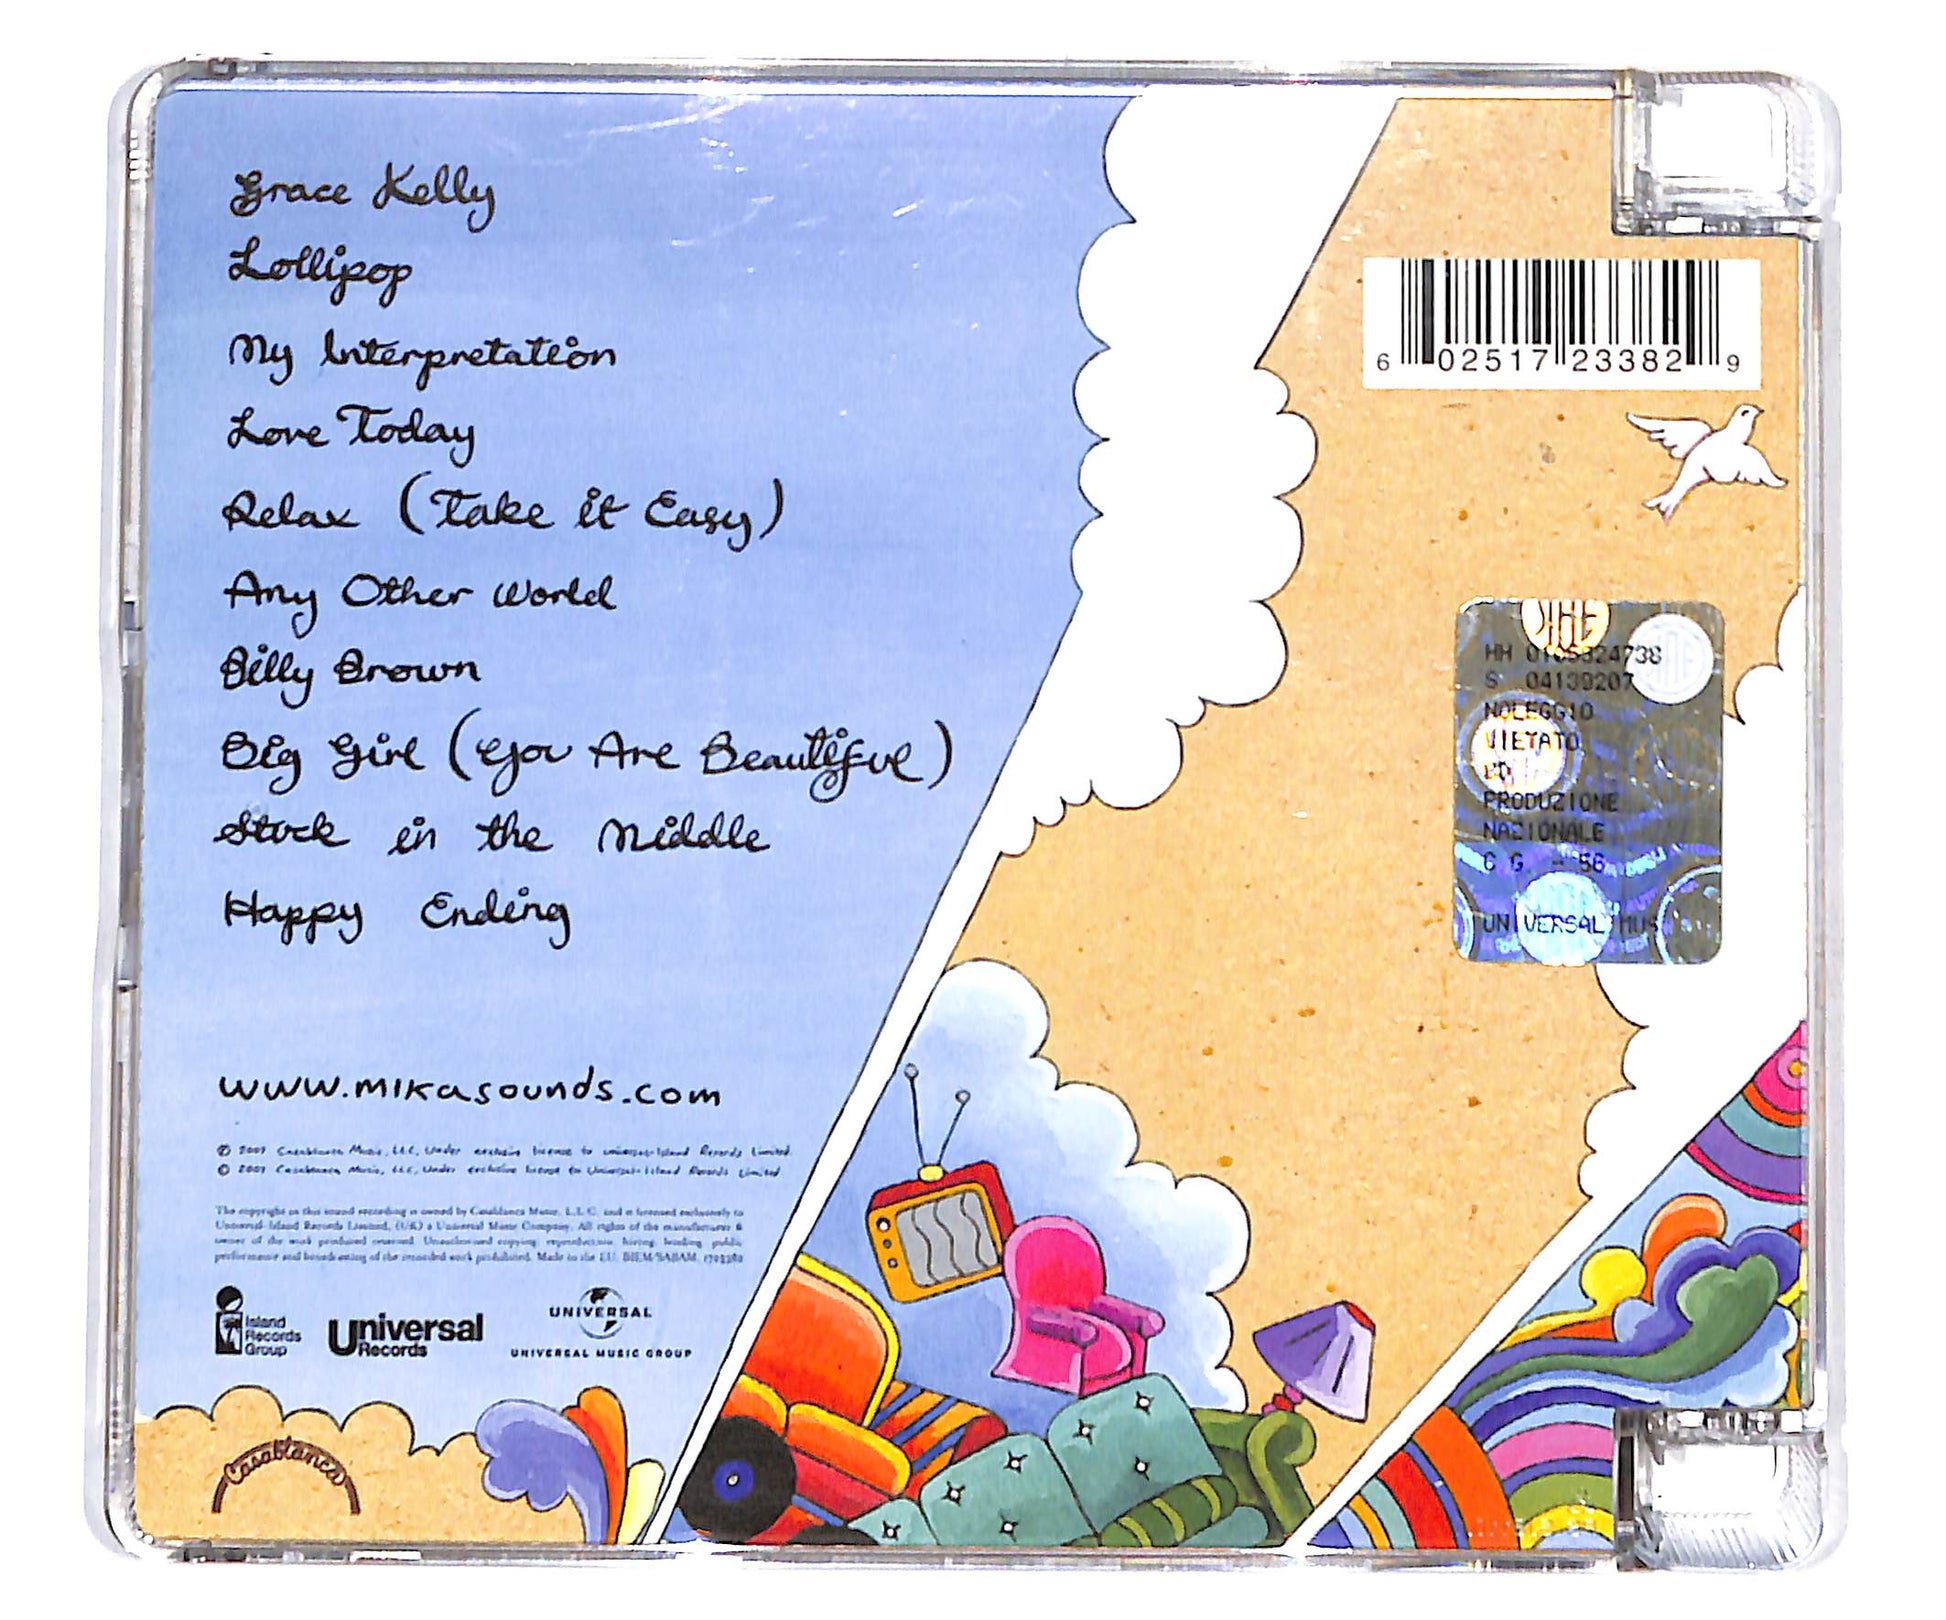 Grace Kelly
Lollipop
My Interpretation
Love Today
Relax (Take it Easy)
Any Other World
Billy Brown
Big Girl (You Are Beautiful)
Stuck in the Middle
Happy Ending
www.mikasounds.com
℗ 2007 Casablanca Music, LLC, Under exclusive license to Universal-Island Records Limited.
© 2007 Casablanca Music, LLC, Under exclusive license to Universal-Island Records Limited
The copyright in this sound recording is owned by Casablanca Music, L.L.C. and is licensed exclusively to
Universal-Island Records Limited, (UK) a Universal Music Company. All rights of the manufacturer &
owner of the work produced reserved. Unauthorised copying, reproduction, hiring, lending, public
performance and broadcasting of the recorded work prohibited. Made in the EU. BIEM/SABAM. 1723382
Island
Records
Group
Universal
Records
UNIVERSAL
UNIVERSAL MUSIC GROUP
Casablanca
6 02517 23382 9
HH 0105324738
S 04139207
NOLEGGIO
VIETATO
CD
PRODUZIONE
NAZIONALE
C G. - 56
UNIVERSAL MUS